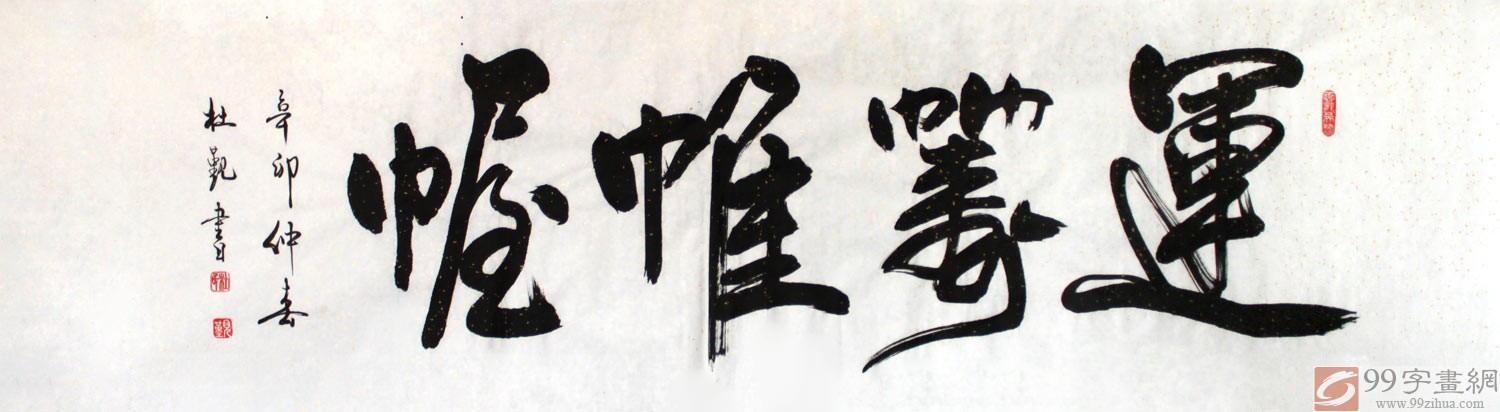 運籌帷幄
辛卯仲春
杜觐書
99字畫網
www.99zihua.com